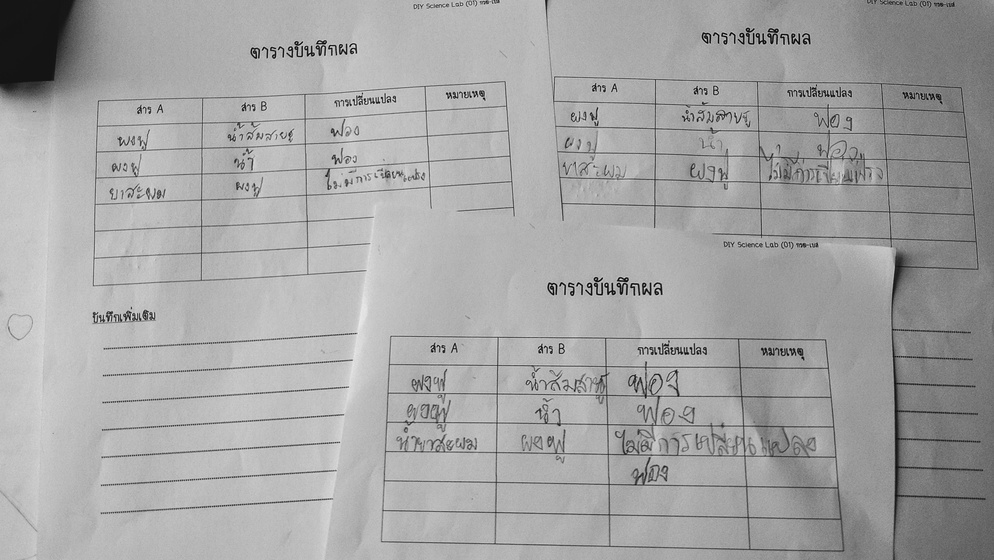 DIY Science Lab (01) กรด-เบส
ตารางบันทึกผล
สาร A สาร B การเปลี่ยนแปลง หมายเหตุ
ผงฟู น้ำส้มสายชู ฟอง
ผงฟู น้ำ ฟอง
ยาสะผม ผงฟู ไม่มีการเปลี่ยนแปลง
บันทึกเพิ่มเติม
DIY Science Lab (01) กรด-เบส
ตารางบันทึกผล
สาร A สาร B การเปลี่ยนแปลง หมายเหตุ
ผงฟู น้ำส้มสายชู ฟอง
ผงฟู น้ำ ฟอง
ยาสะผม ผงฟู
DIY Science Lab (01) กรด-เบส
ตารางบันทึกผล
สาร A สาร B การเปลี่ยนแปลง หมายเหตุ
ผงฟู ฟอง
ผงฟู น้ำ ฟอง
น้ำยาสะผม ผงฟู ไม่มีการเปลี่ยนแปลง
ฟอง